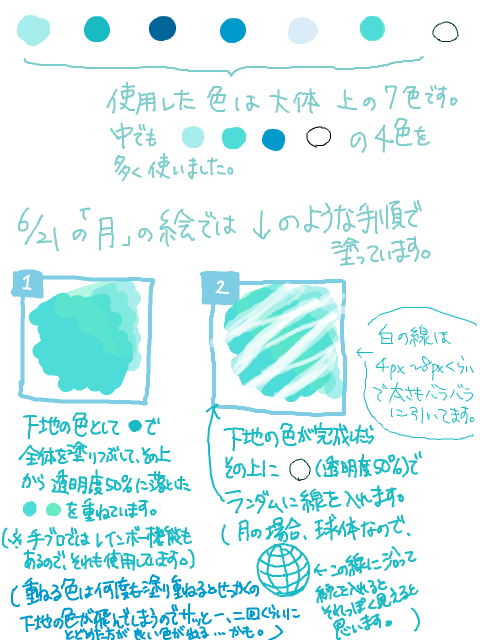 使用した色は大体上の7色です。
中でも の4色を
多く使いました。
6/21「月」の絵では↓のような手順で
塗っています。
1
下地の色として●で
全体を塗りつぶして、その上
から透明度50%に落とした
●●を重ねています。
(※手ブロではレインボー機能も
あるので、それも使用しています。)
(重ねる色は何度も塗り重ねるとせっかくの
下地の色が飛んでしまうのでサッと一、二回くらいに
とどめた方が良い色がねる…かも。)
2
白の線は
4px~8pxくらい
で太さもバラバラ
に引いてます。
下地の色が完成したら
その上に○(透明度50%)で
ランダムに線を入れます。
(月の場合、球体なので、
←この線に沿って
線を入れると
それっぽく見えると
思います。)